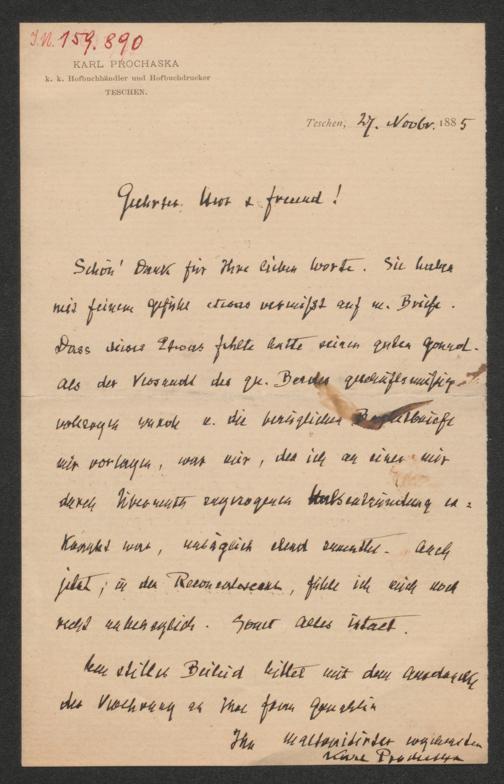 J.N. 159.890
KARL PROCHASKA
k. k. Hofbuchhändler und Hofbuchdrucker
TESCHEN.
Teschen, 27. Novbr. 1885
Geehrter Herr & Freund!
Schön' Dank für Ihre lieben Worte. Sie haben
mit feinem Gefühl etwas vermißt auf m. Briefe.
Dass dieses Etwas fehlte hatte seinen guten Grund.
Als der Versandt des gr. Bandes geschäftsmäßig
vollzogen wurde u. die bezüglichen Begleitbriefe
mir vorlagen, war mir, der ich an einer mir
durch Übermuth zugezogenen Halsentzündung er=
krankt war, unsäglich elend zumuthe. Auch
jetzt, in der Reconvalescenz, fühle ich mich noch
recht unbehaglich. Sonst alles intact.
Um stilles Beileid bittet mit dem Ausdrucke
der Verehrung an Ihre Frau Gemahlin
Ihr
Karl Prochaska